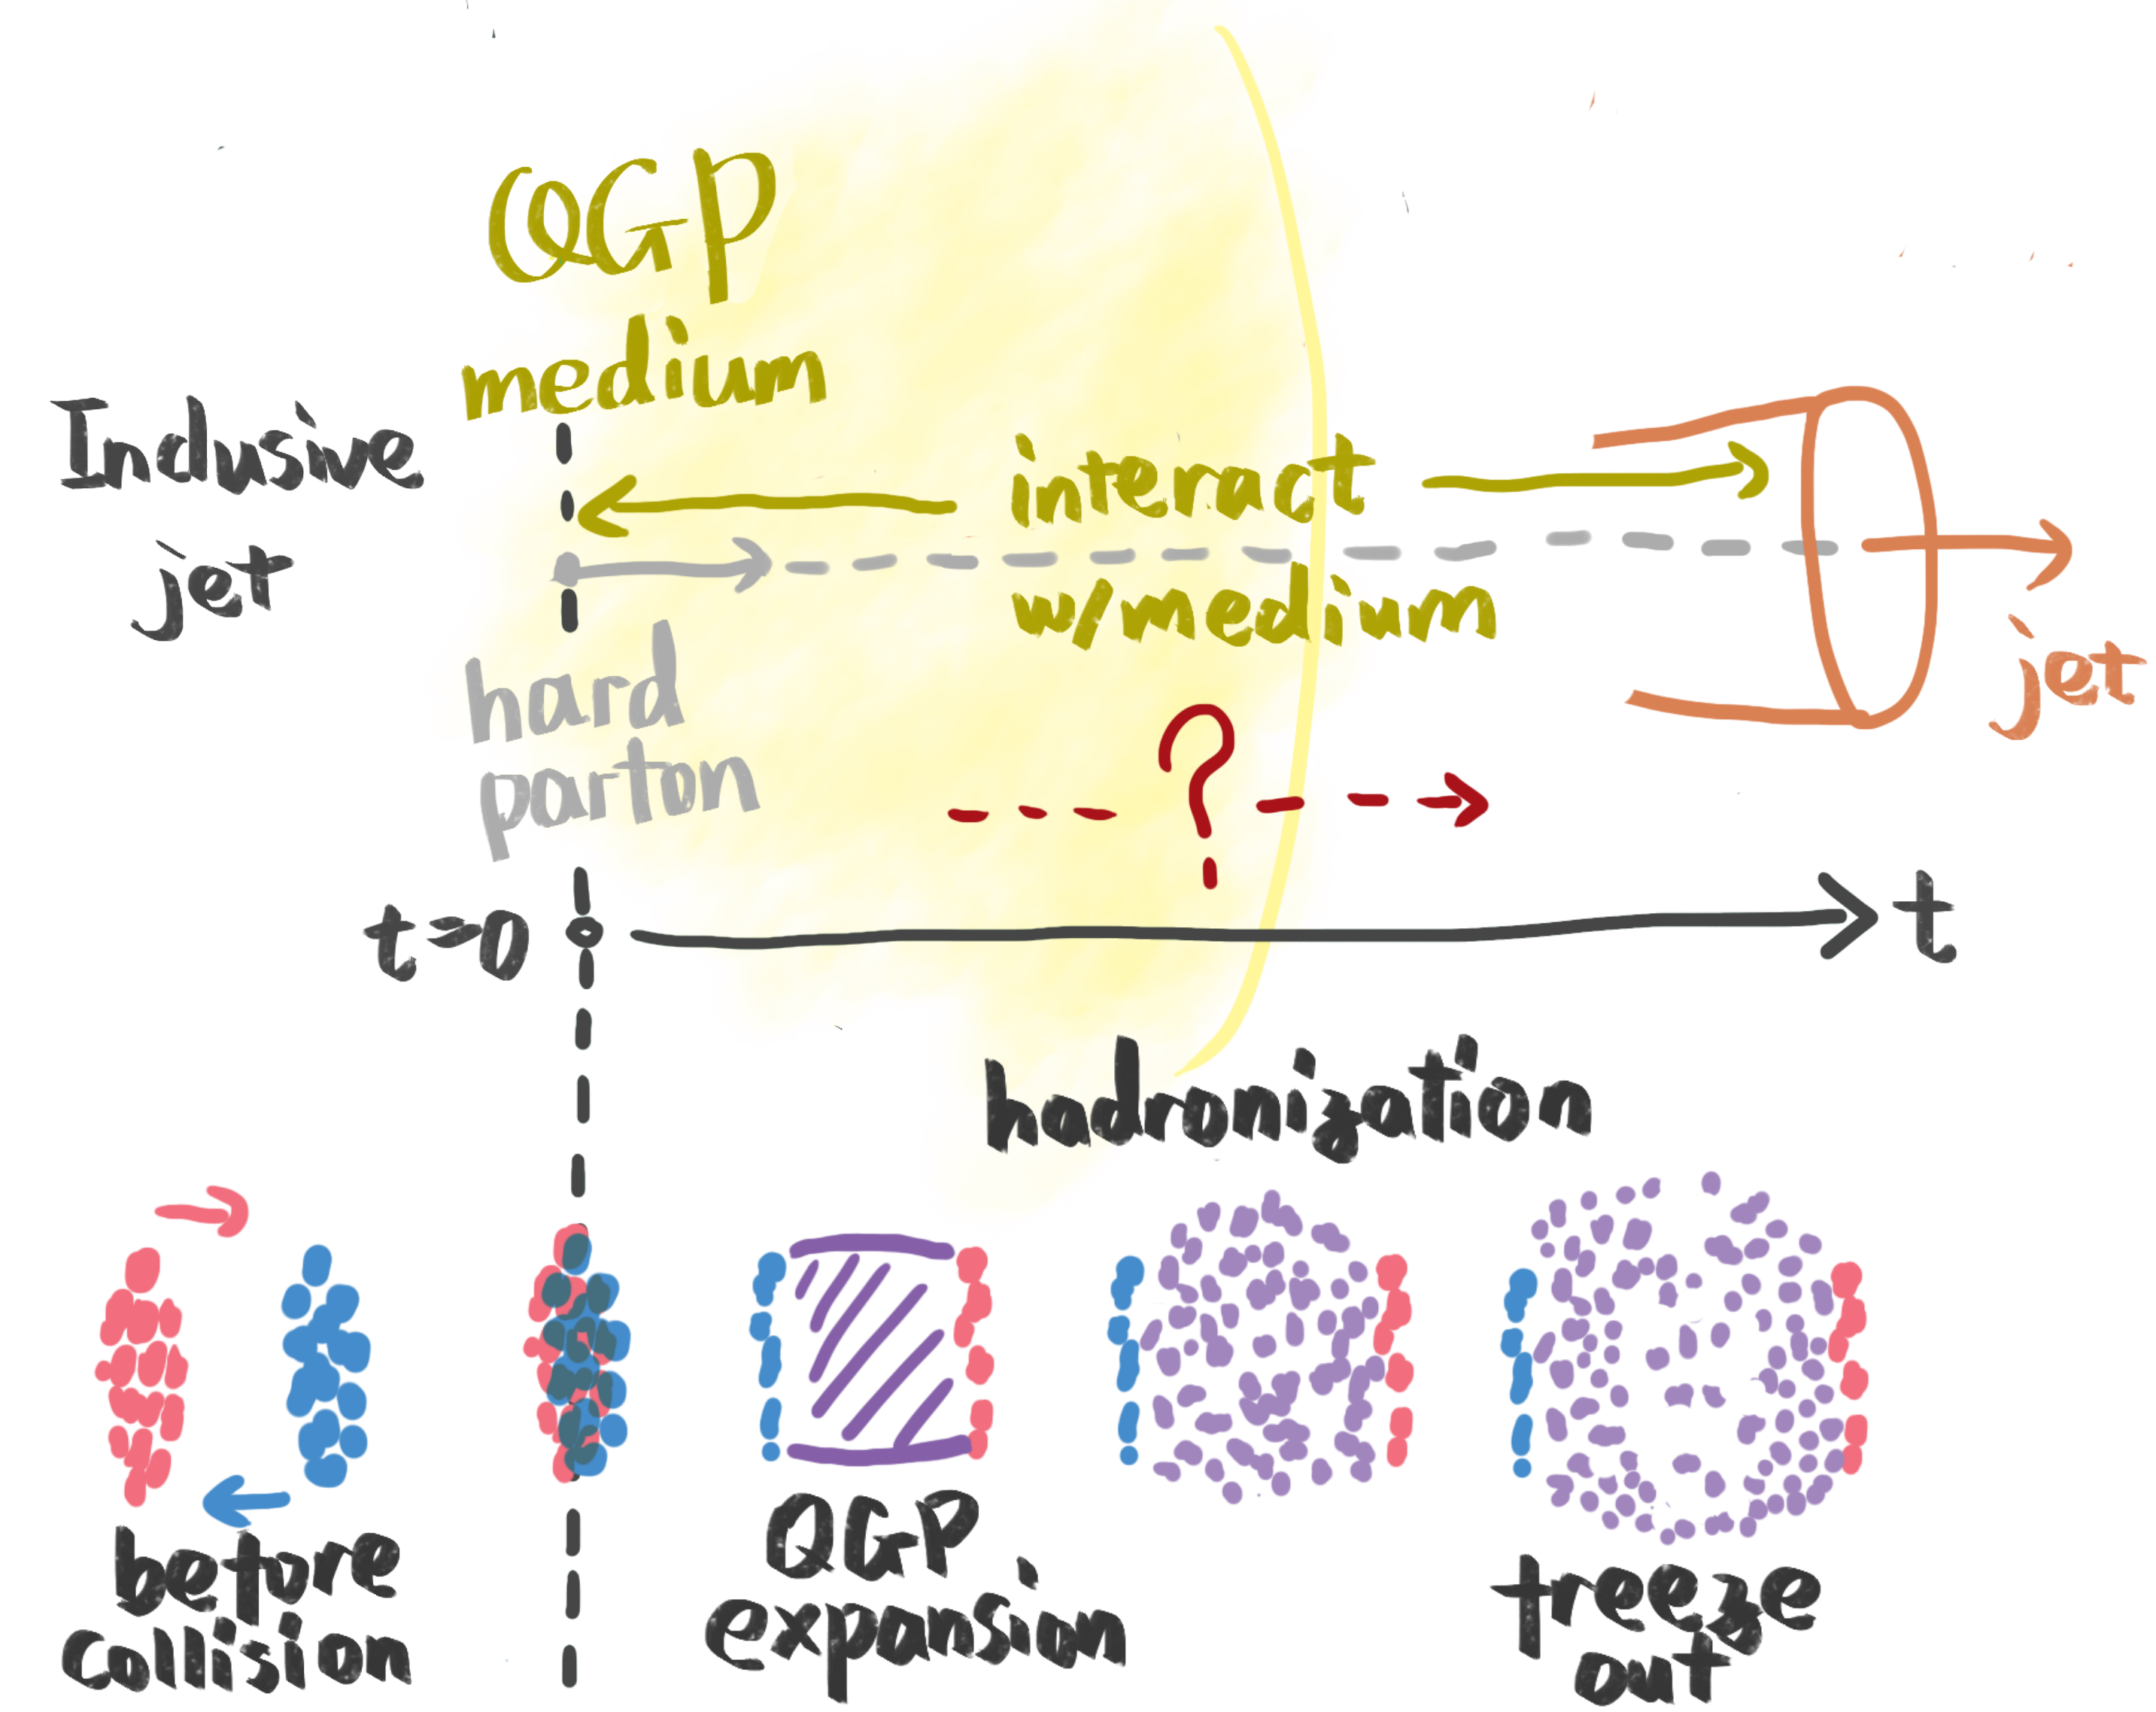 QGP
medium
Inclusive
jet
interact
w/medium
hard
parton
jet
?
t=0
t
hadronization
before
collision
QGP
expansion
freeze
out